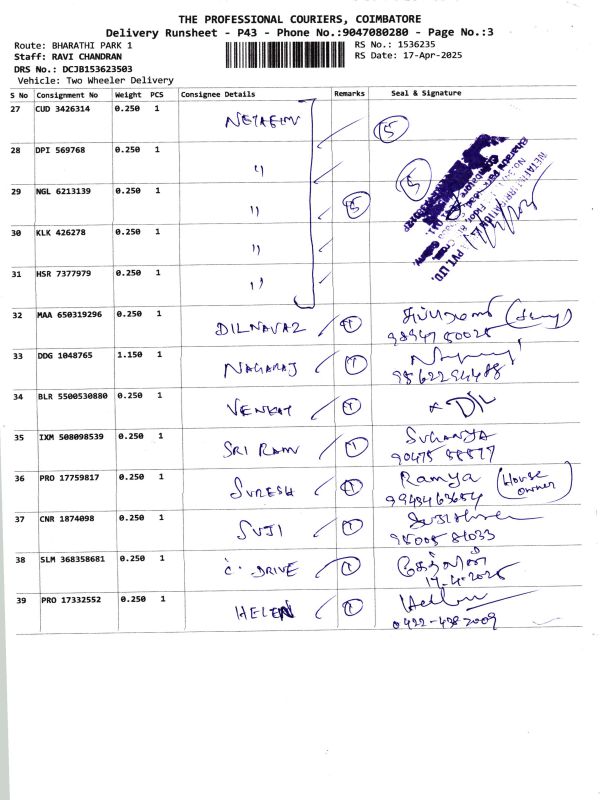 THE PROFESSIONAL COURIERS, COIMBATORE
Delivery Runsheet - P43 - Phone No.:9047080280 - Page No.:3
Route: BHARATHI PARK 1 RS No.: 1536235
Staff: RAVI CHANDRAN RS Date: 17-Apr-2025
DRS No.: DCJB153623503
Vehicle: Two Wheeler Delivery
S No Consignment No Weight PCS Consignee Details Remarks Seal & Signature
27 CUD 3426314 0.250 1 5
28 DPI 569768 0.250 1 " 5
29 NGL 6213139 0.250 1 " 5
30 KLK 426278 0.250 1 "
31 HSR 7377979 0.250 1 "
PVT. LTD.
32 MAA 650319296 0.250 1 DILNAVAZ 1
33 DDG 1048765 1.150 1 NAGARAJ 1
98622 94488
34 BLR 5500530880 0.250 1 VENKAT 1
35 IXM 508098539 0.250 1 SRI RAM 1 SUGANYA
90475 88877
36 PRO 17759817 0.250 1 SURESH 1 Ramya (House owner)
9948463654
37 CNR 1874098 0.250 1 SUJI 1
95008 81033
38 SLM 368358681 0.250 1 C. DRIVE 1
17-4-2025
39 PRO 17332552 0.250 1 HELEN 1
0422-438 2009